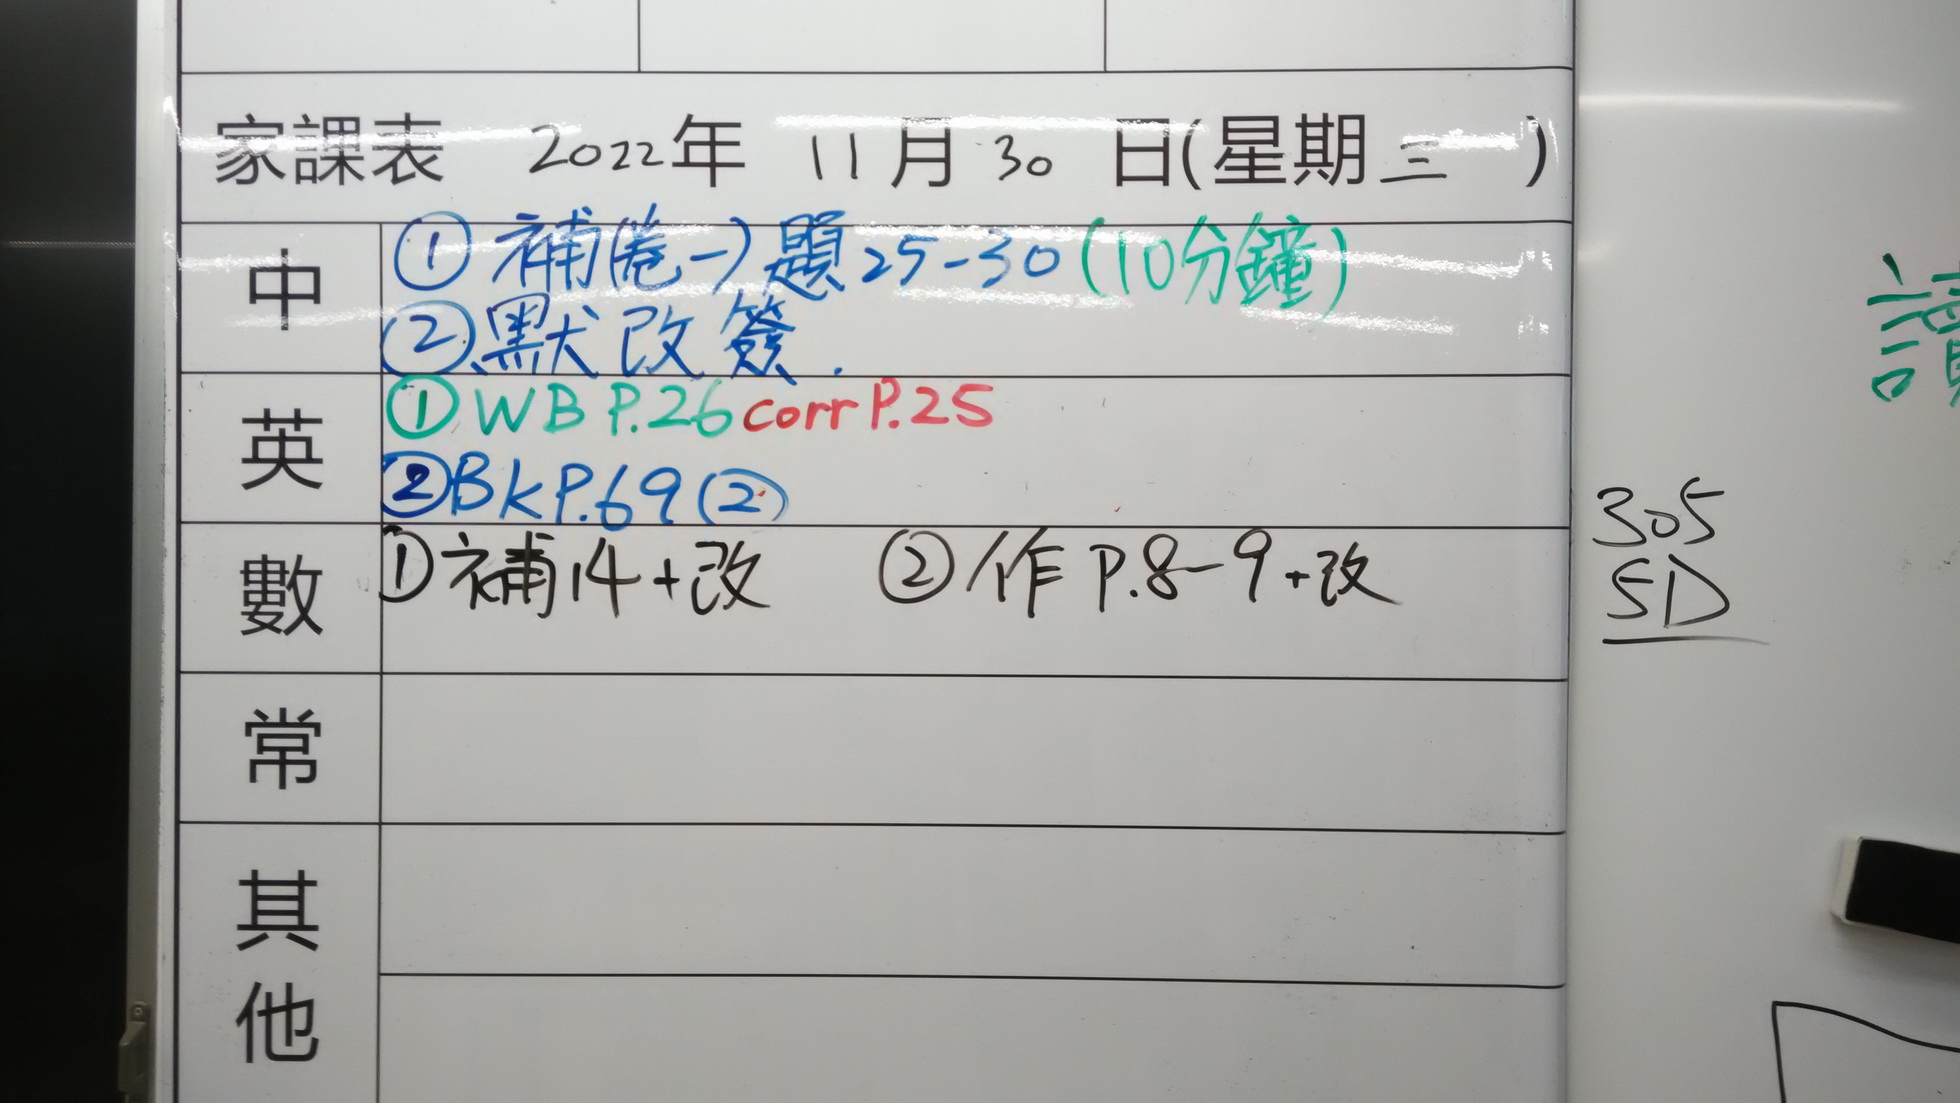 家課表 2022年 11月30日(星期三)
中
①補(卷一)題25-30(10分鐘)
②默改簽.
英
①WB P.26 corr P.25
②Bk P.69(2)
數
①補14+改 ②作P.8-9+改
常
其他
305
5D